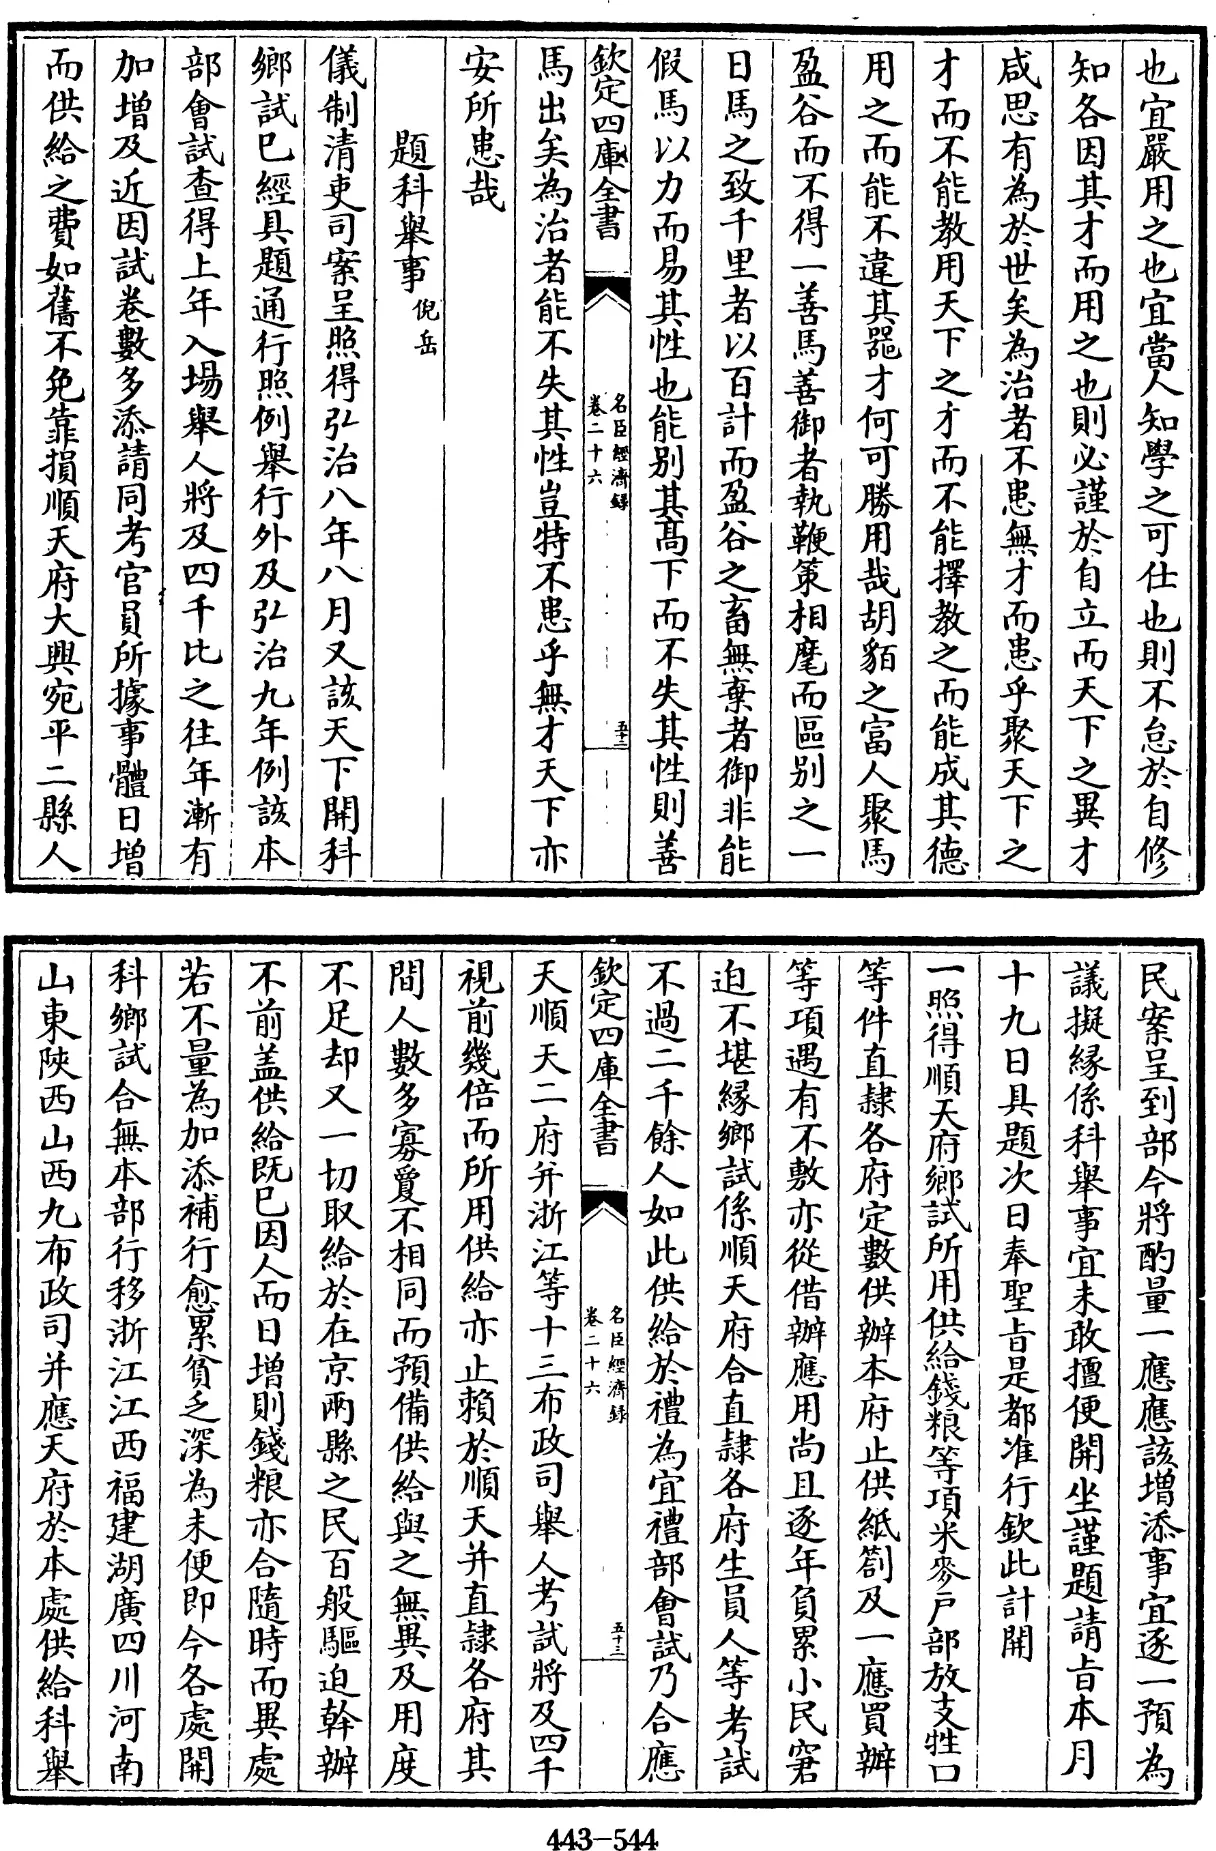 也宜嚴用之也宜當人知學之可仕也則不怠於自修
知各因其才而用之也則必謹於自立而天下之異才
咸思有為於世矣為治者不患無才而患乎聚天下之
才而不能教用天下之才而不能擇教之而能成其德
用之而能不違其器才何可勝用哉胡貊之富人聚馬
盈谷而不得一善馬善御者執鞭策相麾而區别之一
日馬之致千里者以百計而盈谷之畜無棄者御非能
假馬以力而易其性也能别其髙下而不失其性則善
欽定四庫全書
名臣經濟録
卷二十六
五十三
馬出矣為治者能不失其性豈特不患乎無才天下亦
安所患哉
題科舉事 倪岳
儀制清吏司案呈照得弘治八年八月又該天下開科
鄉試已經具題通行照例舉行外及弘治九年例該本
部會試查得上年入場舉人將及四千比之往年漸有
加增及近因試卷數多添請同考官員所據事體日增
而供給之費如舊不免靠損順天府大興宛平二縣人
民案呈到部今將酌量一應應該增添事宜逐一預為
議擬縁係科舉事宜未敢擅便開坐謹題請㫖本月
十九日具題次日奉聖㫖是都准行欽此計開
一照得順天府鄉試所用供給錢粮等項米麥户部放支牲口
等件直隷各府定數供辦本府止供紙劄及一應買辦
等項遇有不敷亦從借辦應用尚且逐年負累小民窘
迫不堪縁鄉試係順天府合直隷各府生員人等考試
不過二千餘人如此供給於禮為宜禮部會試乃合應
欽定四庫全書
名臣經濟録
卷二十六
五十三
天順天二府并浙江等十三布政司舉人考試將及四千
視前幾倍而所用供給亦止賴於順天并直隷各府其
間人數多寡夐不相同而預備供給與之無異及用度
不足却又一切取給於在京兩縣之民百般驅迫幹辦
不前盖供給既已因人而日增則錢粮亦合隨時而異處
若不量為加添補行愈累貧乏深為未便即今各處開
科鄉試合無本部行移浙江江西福建湖廣四川河南
山東陜西山西九布政司并應天府於本處供給科舉
443-544